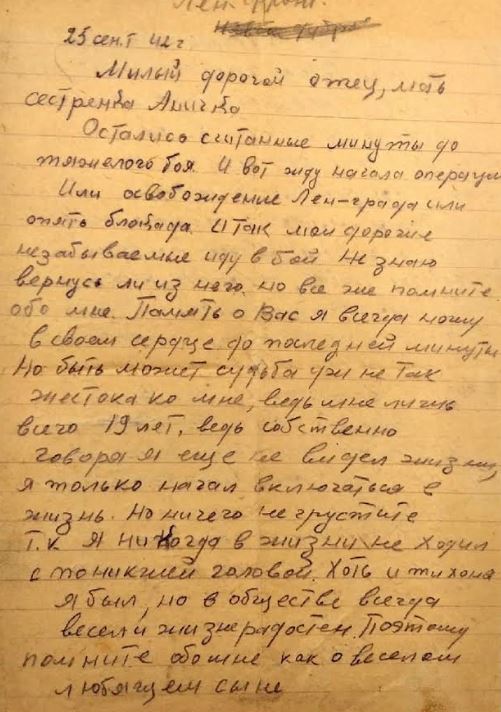 Лен. фронт.
25 сент 42 г
Милый дорогой отец, мать
сестренка Аничка
Остались считанные минуты до
тяжелого боя. И вот жду начала операции
Или освобождение Лен-града или
опять блокада. Итак мои дорогие
незабываемые иду в бой. Не знаю
вернусь ли из него. но все же помните
обо мне. Память о Вас я всегда ношу
в своем сердце до последней минуты
Но быть может судьба уж не так
жестока ко мне, ведь мне лишь
всего 19 лет, ведь собственно
говоря я еще не видел жизни,
я только начал включаться в
жизнь. Но ничего не грустите
т.к. я никогда в жизни не ходил
с поникшей головой. Хоть и тихоня
я был, но в обществе всегда
весел и жизнерадостен. Поэтому
помните обо мне как о веселом
любящем сыне